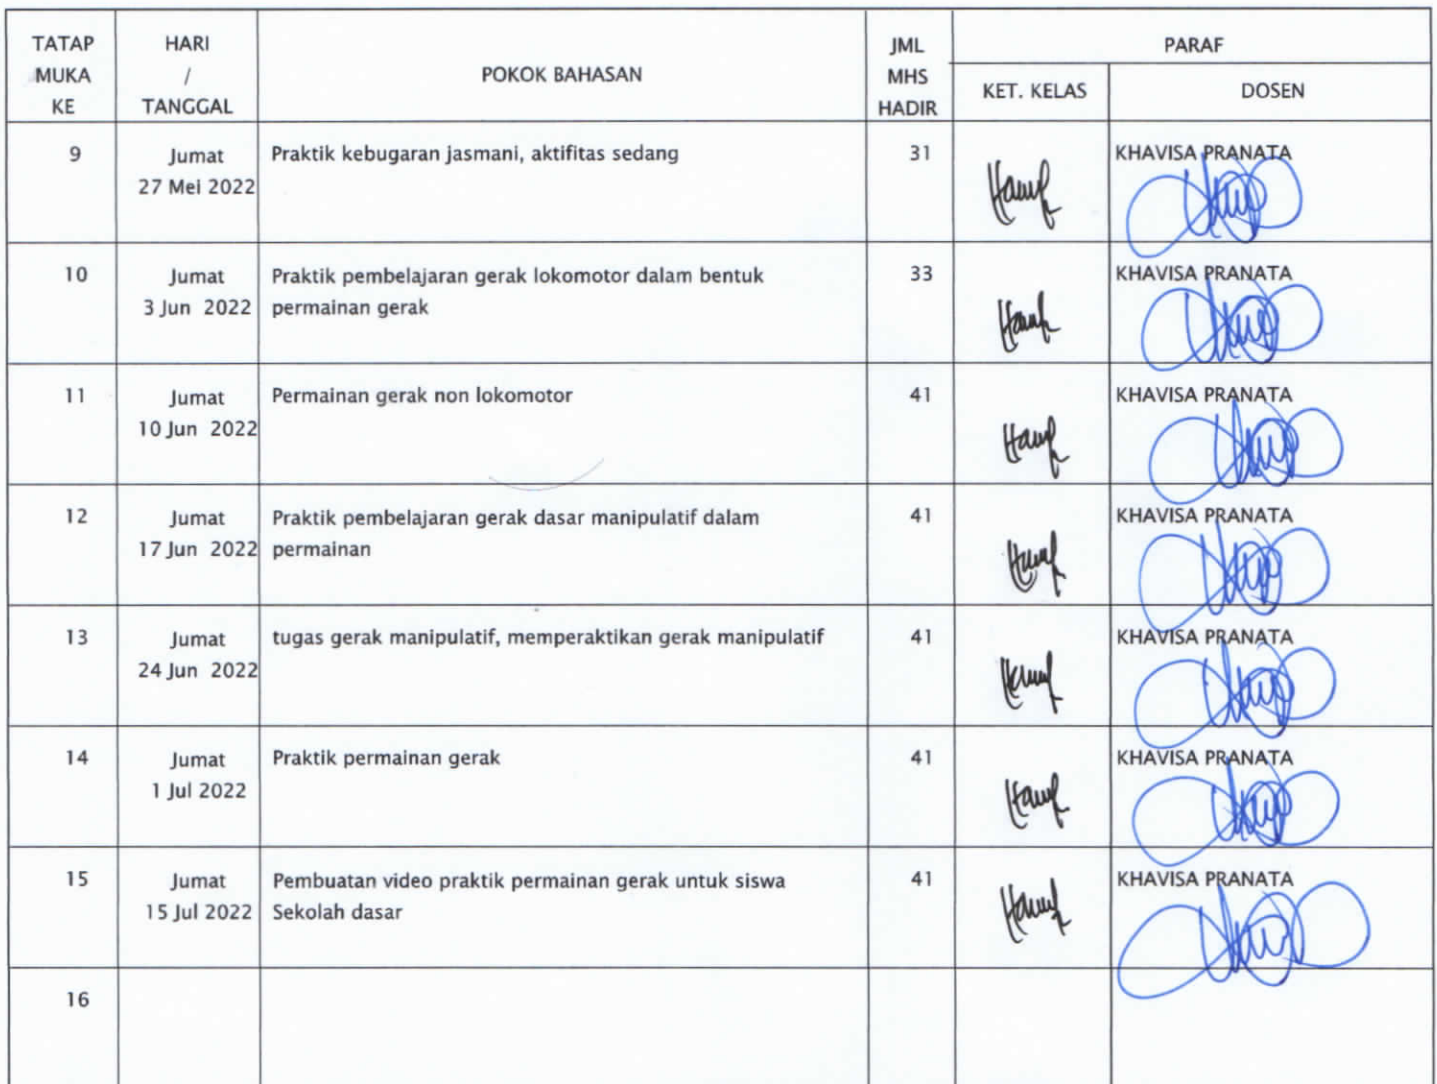 TATAP MUKA KE
HARI / TANGGAL
POKOK BAHASAN
JML MHS HADIR
PARAF
KET. KELAS
DOSEN
9
Jumat
27 Mei 2022
Praktik kebugaran jasmani, aktifitas sedang
31
KHAVISA PRANATA
10
Jumat
3 Jun 2022
Praktik pembelajaran gerak lokomotor dalam bentuk
permainan gerak
33
KHAVISA PRANATA
11
Jumat
10 Jun 2022
Permainan gerak non lokomotor
41
KHAVISA PRANATA
12
Jumat
17 Jun 2022
Praktik pembelajaran gerak dasar manipulatif dalam
permainan
41
KHAVISA PRANATA
13
Jumat
24 Jun 2022
tugas gerak manipulatif, memperaktikan gerak manipulatif
41
KHAVISA PRANATA
14
Jumat
1 Jul 2022
Praktik permainan gerak
41
KHAVISA PRANATA
15
Jumat
15 Jul 2022
Pembuatan video praktik permainan gerak untuk siswa
Sekolah dasar
41
KHAVISA PRANATA
16